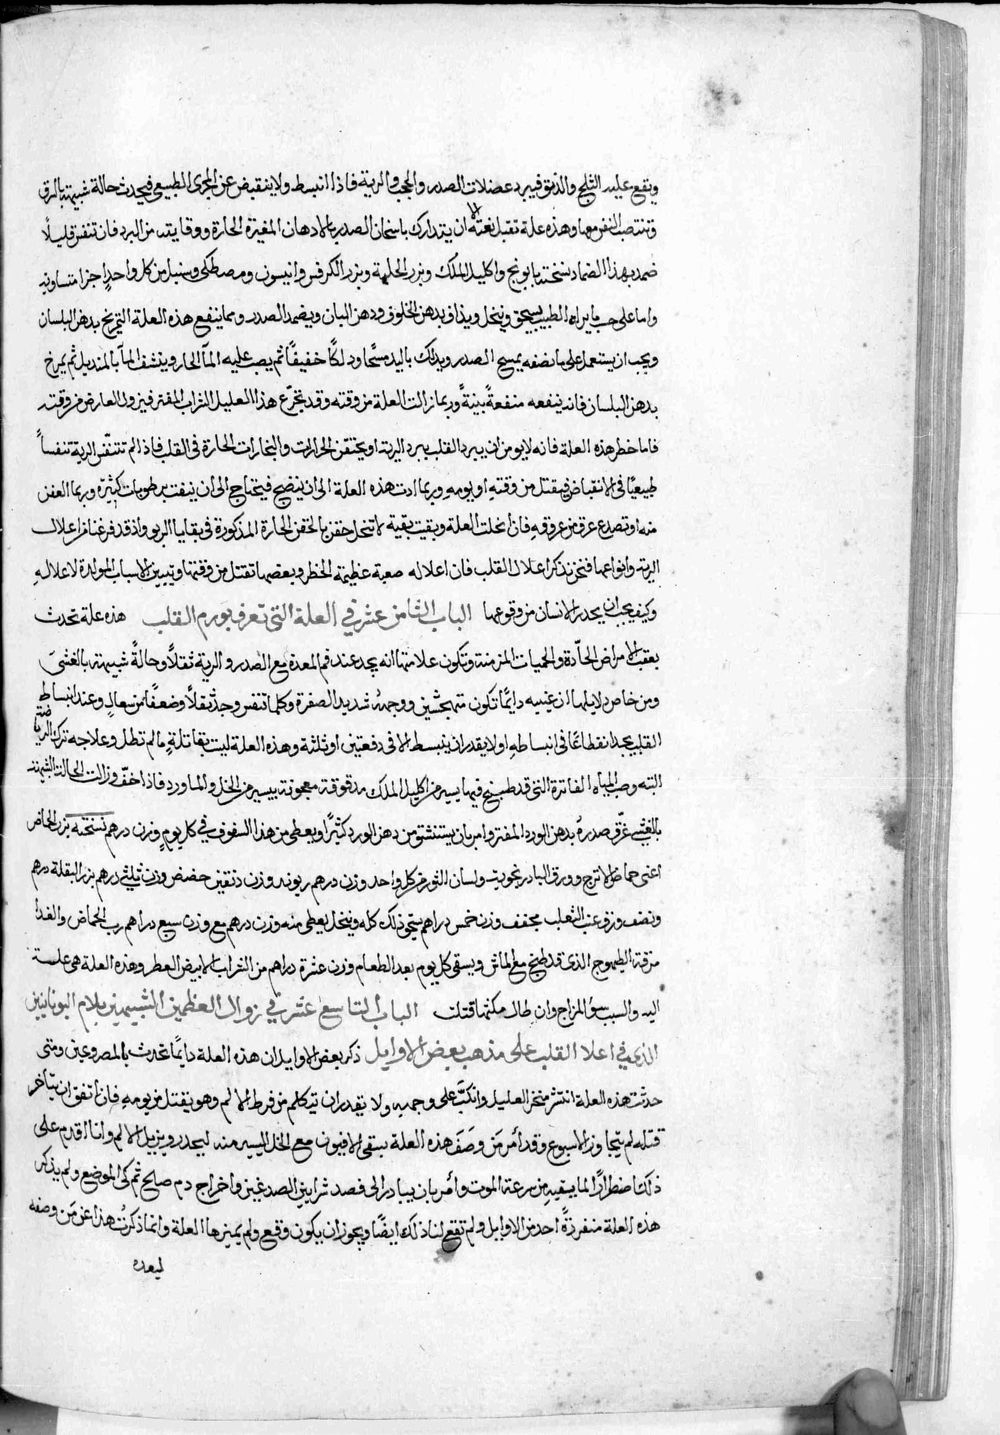 ويقع عليه الثلج والدمق فيبرد عضلات الصدر والحجب والرية فاذا انبسط ولا ينقبض عن المجرى الطبيعي فيحدث حالة شبيهة بالرق
وتنتصب النفس معها وهذه علة تقتل بغتة الا ان يتدارك باسخان الصدر بالادهان المغيرة الحارة ووقايته من البرد فان تنفس قليلًا
ضمد بهذا الضماد نسخته بابونج واكليل الملك وبزر الحلبة وبزر الكرفس وانيسون ومصطكى وسنبل من كل واحدٍ اجزا متساوية
واما على حسب ما يراه الطبيب يسحق وينخل ويذاف بدهن الخلوق ودهن البان ويضمد الصدر ومما ينفع هذه العلة التمريخ بدهن البلسان
ويجب ان يستعمل على ما نصفه يمسح الصدر ويدلك باليد مسحًا ودلكًا خفيفًا ثم يصب عليه المآ الحار وينشف المآ بالمنديل ثم يمرخ
بدهن البلسان فانه ينفعه منفعةً بينةً وربما زالت العلة من وقته وقد يتجرّع هذا العليل الشراب المفتر فيزول العارض من وقته
فاما خطر هذه العلة فانه لا يومن ان يبرد القلب ببرد الرية او يحتقن الحرارات والبخارات الحارة في القلب فاذا لم تتنفّس الرية تنفساً
طبيعيًا في الانقباض فيقتل من وقته او يومه وربما ادت هذه العلة الى ان ينضج فيحتاج الى ان ينفث برطوبات كثيرة وربما العفن
منه او تصدع عرق من عروقه فان انحلت العلة وبقيت بقية لا تنحل حقن بالحقن الحارة المذكورة في بقايا الربو واذ قد فرغنا من اعلال
الرية وانواعها فنحن نذكر اعلال القلب فان اعلاله صعبة عظيمة الخطر وبعضها تقتل من وقتها وتبيين الاسباب المولدة لاعلاله
وكيف يجب ان يحذر الانسان من وقوعها الباب الثامن عشر في العلة التي تعرف بورم القلب هذه علة تحدث
بعقب الامراض الحادّة والحميات المزمنة وتكون علامتها انه يجد عند فم المعدة مع الصدر والرية ثقلًا وحالةً شبيهة بالغشي
ومن خاص دلايلها ان عينيه دايمًا تكون متهبجتين ووجهه شديد الصفرة وكلما تنفس وجد ثقلًا وضعفًا من سعالٍ وعند انبساط
القلب يجد انقطاعًا في انبساطهِ اولا يقدر ان ينبسط الا في دفعتين او ثلثة وهذه العلة ليست بقاتلةٍ ما لم تطل وعلاجه ترك الرياضة
البته وصب المياه الفاترة التي قد طبخ فيها يسير من اكليل الملك مدقوقة معجونة بيسير من الخل والماورد فاذا خفّ وزالت الحالة الشبيهة
بالغشي غرّق صدره بدهن الورد المفتر وامر بان يستنشق من دهن الورد كثيرًا ويعطى من هذا السفوف في كل يومٍ وزن درهم نسخته بزر الحماض
اعني حماض الاترج وورق البادرنجويه ولسان الثور من كل واحد وزن درهم ريوند وزن دنقين حضض وزن ثلثي درهم بزر البقلة درهم
ونصف ورق عنب الثعلب مجفف وزن خمس دراهم يسحق ذلك كله وينخل يعطى منه وزن درهم مع وزن سبع دراهم رب الحماض والغذا
مرقة الطيهوج الذي قد طبخ مع الماش ويسقى كل يوم بعد الطعام وزن عشرة دراهم من الشراب الابيض العطر وهذه العلة هي علسة
اليه والسبب سو المزاج وان طال مكثها قتلت الباب التاسع عشر في زوال العظمين الشبيهين بلام اليونانيين
الذي في اعلا القلب على مذهب بعض الاوايل ذكر بعض الاوايل ان هذه العلة دايمًا تحدث بالمصروعين ومتى
حدثت هذه العلة انتثر منخر العليل وانكبّ على وجهه ولا يقدر ان يتكلم من فرط الالم وهو يقتل من يومهِ فان اتفق ان يتاخر
قتله لم يتجاوز الاسبوع وقد أمر مَن وصَفَ هذه العلة بسقي الافيون مع الخل اليسير منه ليخدر ويزيل الالم وانا اقدم على
ذلك اضطرارًا لما يبقيه من سرعة الموت وأمر بان يبادر الى فصد شرايين الصدغين واخراج دم صالح ثم كي الموضع ولم يذكر
هذه العلة منفردةً احد من الاوايل ولم تقع لنا ذلك ايضًا ويجوز ان يكون وقع ولم يميزها العلة وانما ذكرتُ هذا عن مَن وصفه
ليعده